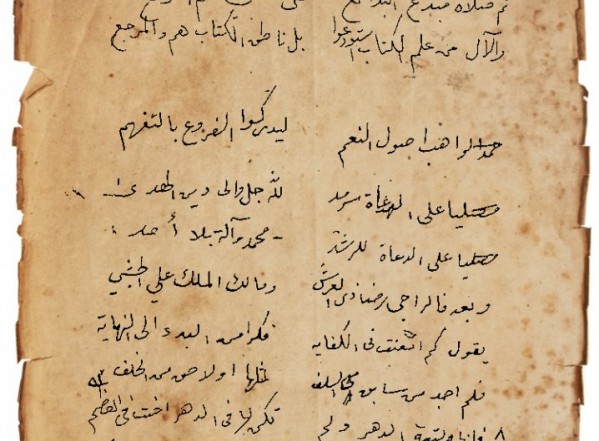 ثم صلاة مبدع البدائع
والآل من علم الكتاب استودعوا بل ناطق الكتاب هم والمرجع
حمدا لواهب اصول النعم ليدركوا الفروع بالتفهم
مصليا على الهداة سرمد لله جل والى دين الهدى
مصليا على الدعاة للرشد محمد وآله بلا أمد
وبعد فالراجي رضا ذي العرش ومالك الملك علي الحبشي
يقول كم اتعبت في الكفايه فكرا من البدء الى النهاية
فلم اجد من سابق في السلف مثلها اولاحق من الخلف
فانها الدهر ولم تكن لها في الدهر اخت في العظم